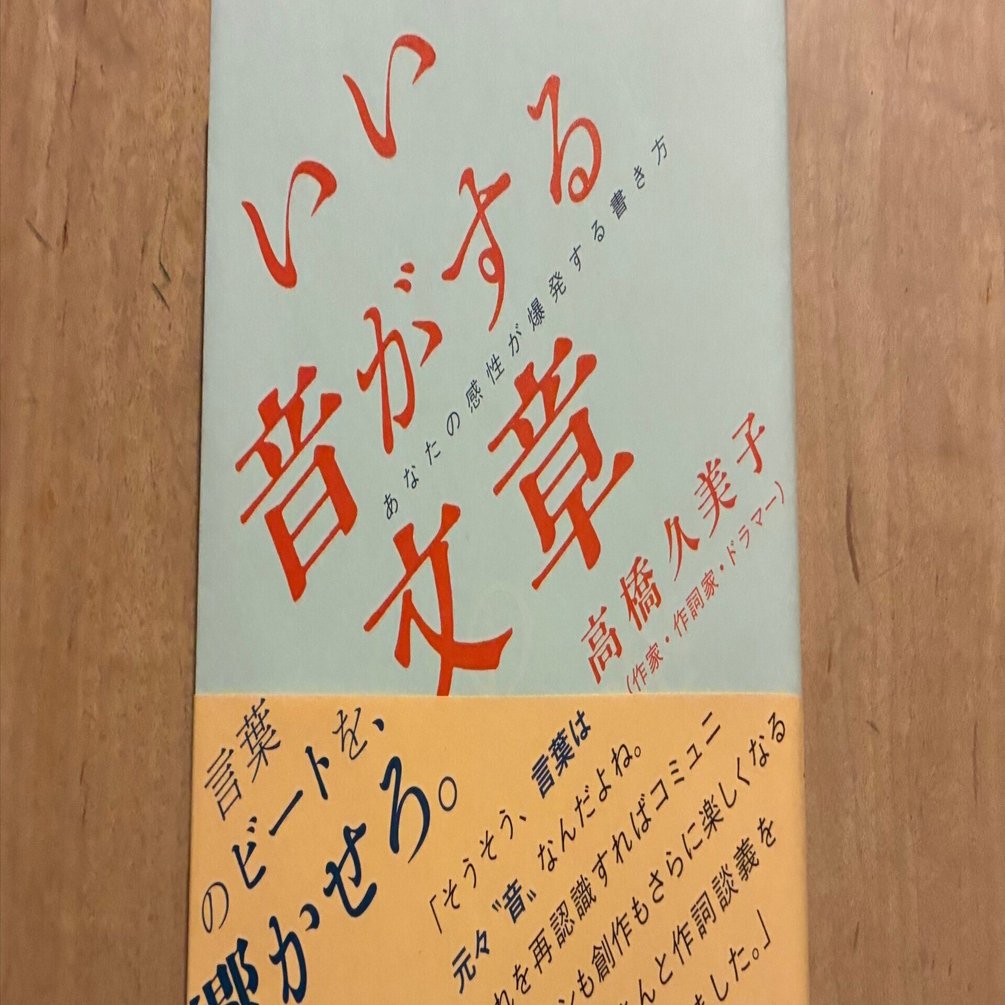 いい
音がする
文章
あなたの感性が爆発する書き方
高橋久美子
(作家・作詞家・ドラマー)
言葉
のビートを、
響かせろ。
「そうそう、言葉は
元々〝音〟なんだよね。
れを再認識すればコミュニ
ンも創作もさらに楽しくなる
んと作詞談義を
ました。」